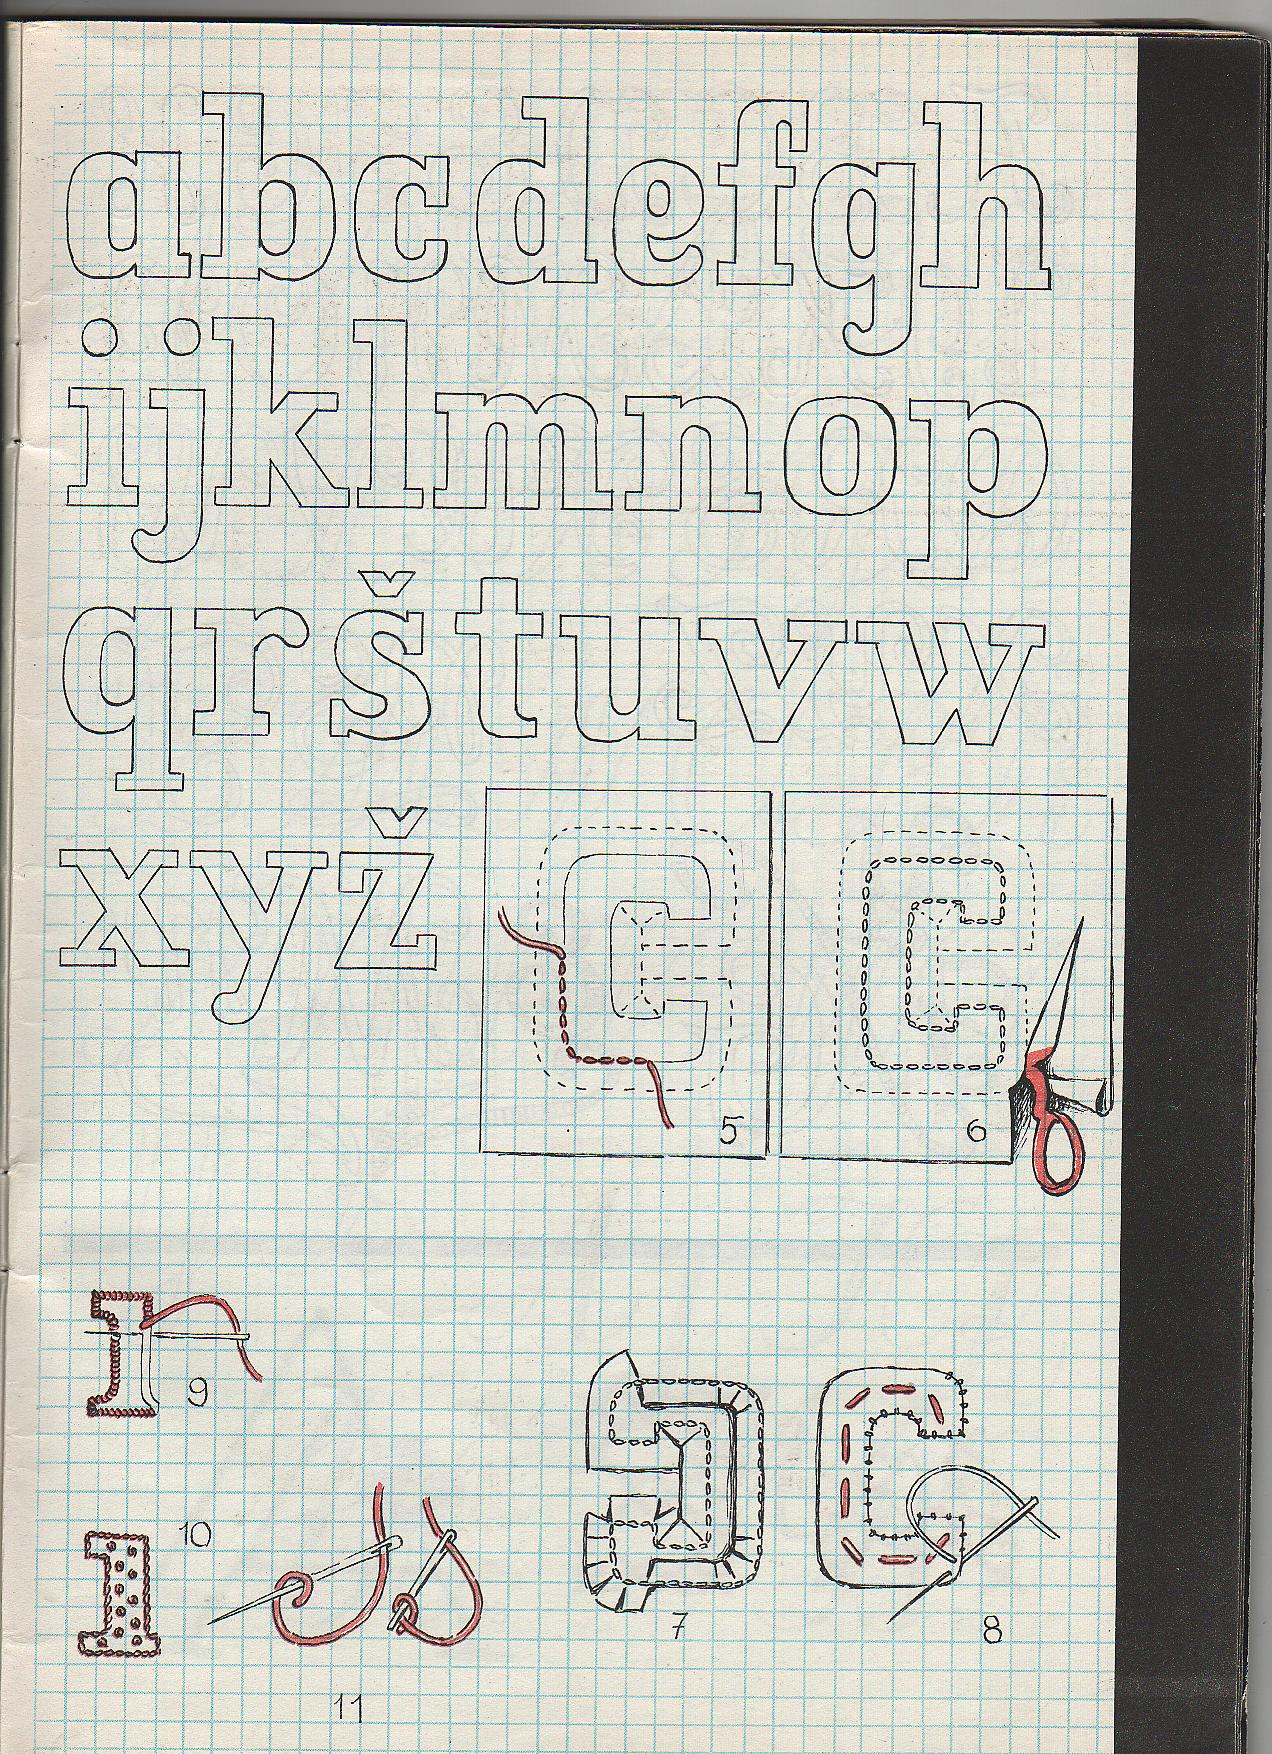 abcdefgh
ijklmnop
qrštuvw
xyž
5
6
9
10
7
8
11